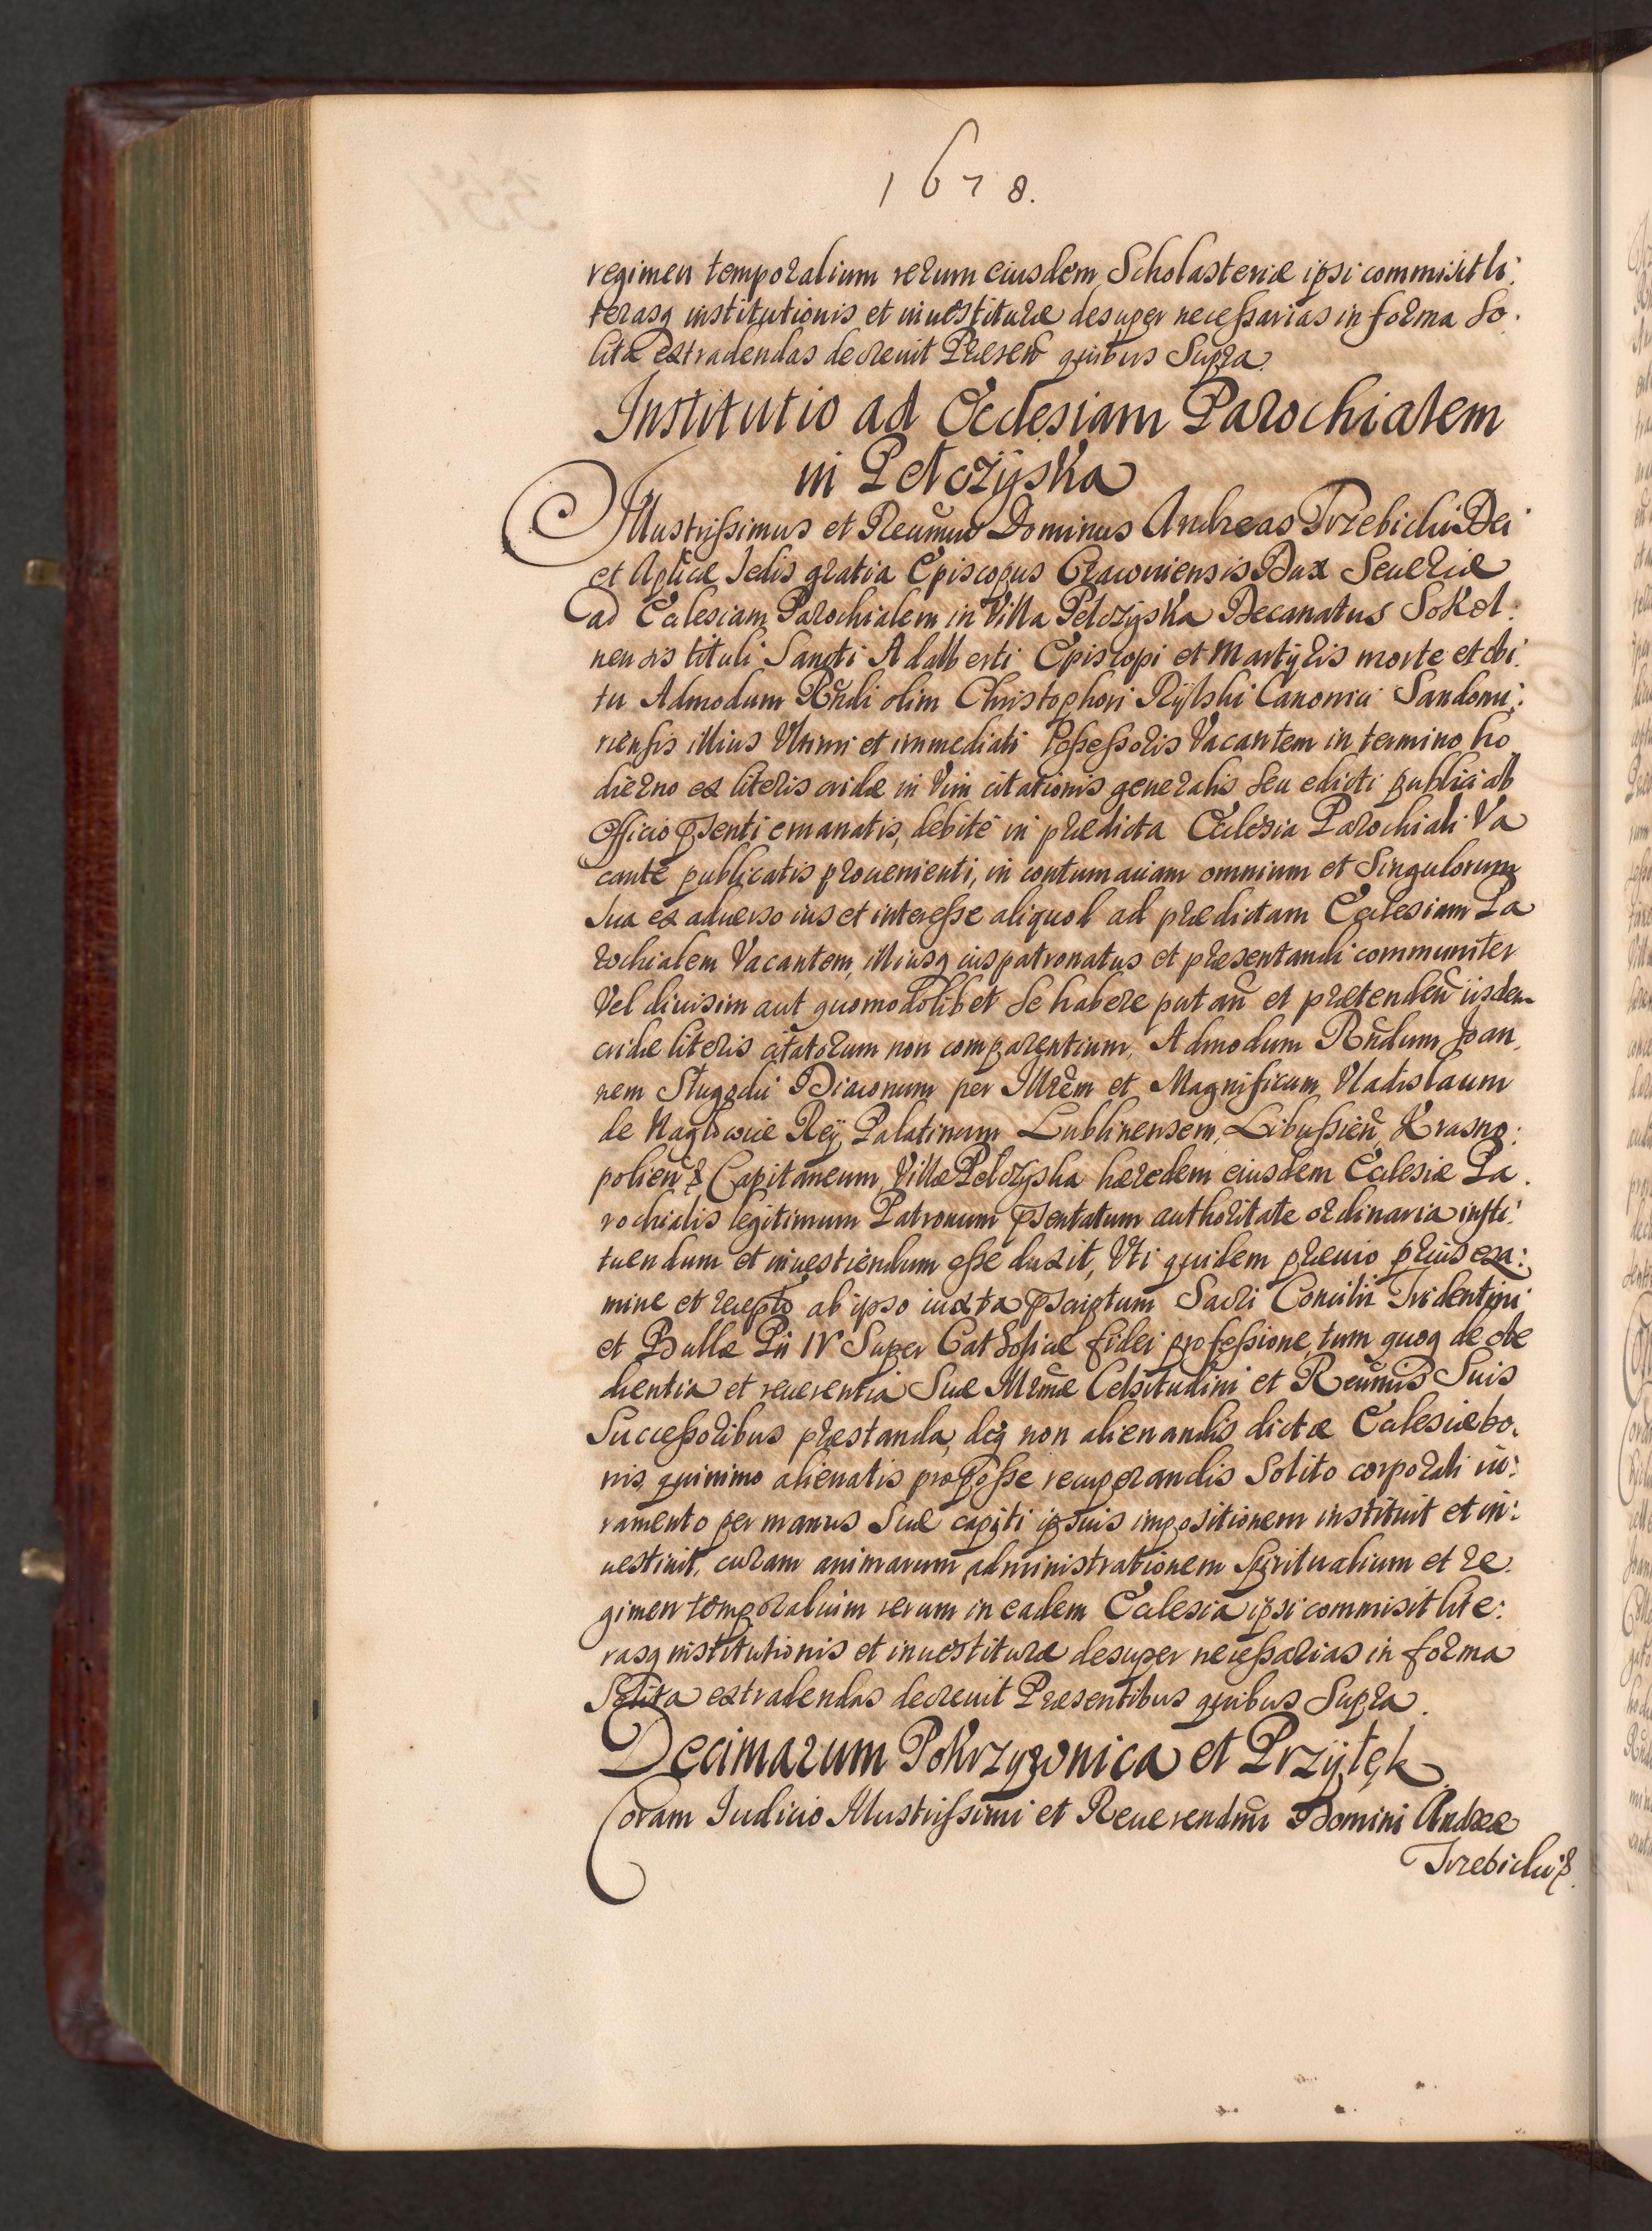 1678.
regimen temporalium rerum eiusdem Scholasteriæ ipsi commisit li:
terasq institutionis et inuestituræ desuper necessarias in forma so.
lita extradendas decreuit Præsen̄ quibus Supra.
Institutio ad Ecclesiam Parochialem
in Pełczÿska
Illustrissimus et Reūmus Dominus Andreas Trzebicki Dei
et Aplicæ Sedis gratia Episcopus Cracouiensis Dux Seueriæ
ad Ecclesiam Parochialem in Villa Pełczÿska Decanatus Sokol:
nensis tituli Sancti Adalberti Episcopi et Martÿris morte et obi.
tu Admodum Rn̄di olim Christophori Rÿlski Canonici Sandomi:
riensis illius Vltimi et immediati Possessoris Vacantem in termino ho
dierno ex literis cridæ in Vim citationis generalis seu edicti publici ab
Officio pn̄senti emanatis, debite in prædicta Ecclesia Parochiali Va
cante publicatis prouenienti, in contumaciam omnium et Singulorum
sua ex aduerso ius et interesse aliquod ad prædictam Ecclesiam Pa
rochialem Vacantem, illiusq iuspatronatus et præsentandi communiter
Vel diuisim aut quomodolibet se habere putan̄ et prætenden̄ iisdem
cridæ literis citatorum non comparentium, Admodum Rn̄dum Joan,
nem Stugocki Diaconum per Illrem et Magnificum Vladislaum
de Nagłowice Reÿ Palatinum Lublinensem, Libussien̄, Krasno:
polien̄ & Capitaneum Villæ Pełczÿska hæredem eiusdem Ecclesiæ Pa.
rochialis legitimum Patronum pn̄sentatum authoritate ordinaria insti:
tuendum et inuestiendum esse duxit, Vti quidem præuio prius exa:
mine et recepto ab ipso iuxta pn̄scriptum Sacri Concilii Tridentini
et Bullæ Pii IV Super Catholicæ fidei professione, tum quoq de obe
dientia et reuerentia Suæ Illrmæ Celsitudini et Reūmis Suis
Successoribus præstanda, deq non alienandis dictæ Ecclesiæ bo.
nis, quinimo alienatis pro posse recuperandis Solito corporali iu:
ramento per manus suæ capiti ipsius impositionem instituit et in:
uestiuit, curam animarum, administrationem Spiritualium et re.
gimen temporalium rerum in eadem Ecclesia ipsi commisit lite:
rasq institutionis et inuestituræ desuper necessarias in forma
Solita extradendas decreuit Præsentibus quibus Supra.
Decimarum Pokrzywnica et Przÿłęk
Coram Iudicio Illustrissimi et Reuerendm̄i Domini Andreæ
Trzebicki &.